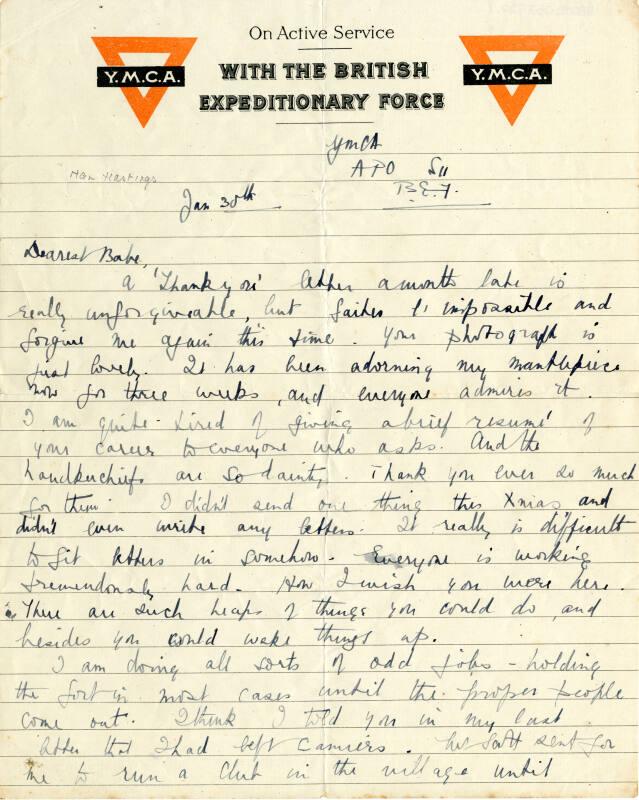 On Active Service
Y.M.C.A. WITH THE BRITISH Y.M.C.A.
EXPEDITIONARY FORCE
YMCA
APO S11
Nan Hastings
B.E.F.
Jan 30th
Dearest Babe,
A 'Thank you' letter a month late is
really unforgiveable, but and
forgive me again this time. Your photograph is
just lovely. It has been adorning my mantlepiece
now for three weeks, and everyone admires it.
I am quite tired of giving a brief resumé of
your career to everyone who asks. And the
handkerchiefs are so dainty. Thank you ever so much
for them. I didn't send one thing this Xmas and
didn't even write any letters. It really is difficult
to fit letters in somehow. Everyone is working
tremendously hard. How I wish you were here.
There are such heaps of things you could do, and
besides you could wake things up.
I am doing all sorts of odd jobs - holding
the fort in most cases until the proper people
come out. I think I told you in my last
letter that I had left Camiers. Scott sent for
me to run a Club in the village until